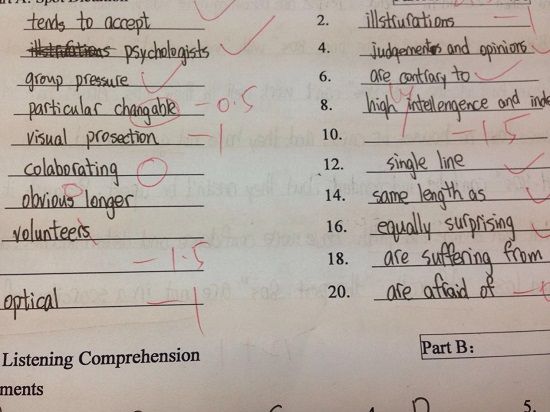 tends to accept
2. illstrurations
psychologists
4. judgements and opinions
group pressure
6. are contrary to
particular changable -0.5
8. high intellengence and inde
visual prosection -1
10. -1.5
colaborating
12. single line
obvious longer
14. same length as
volunteers
16. equally surprising
-1.5
18. are suffering from
optical -1
20. are afraid of
Listening Comprehension
Part B:
ments
5.